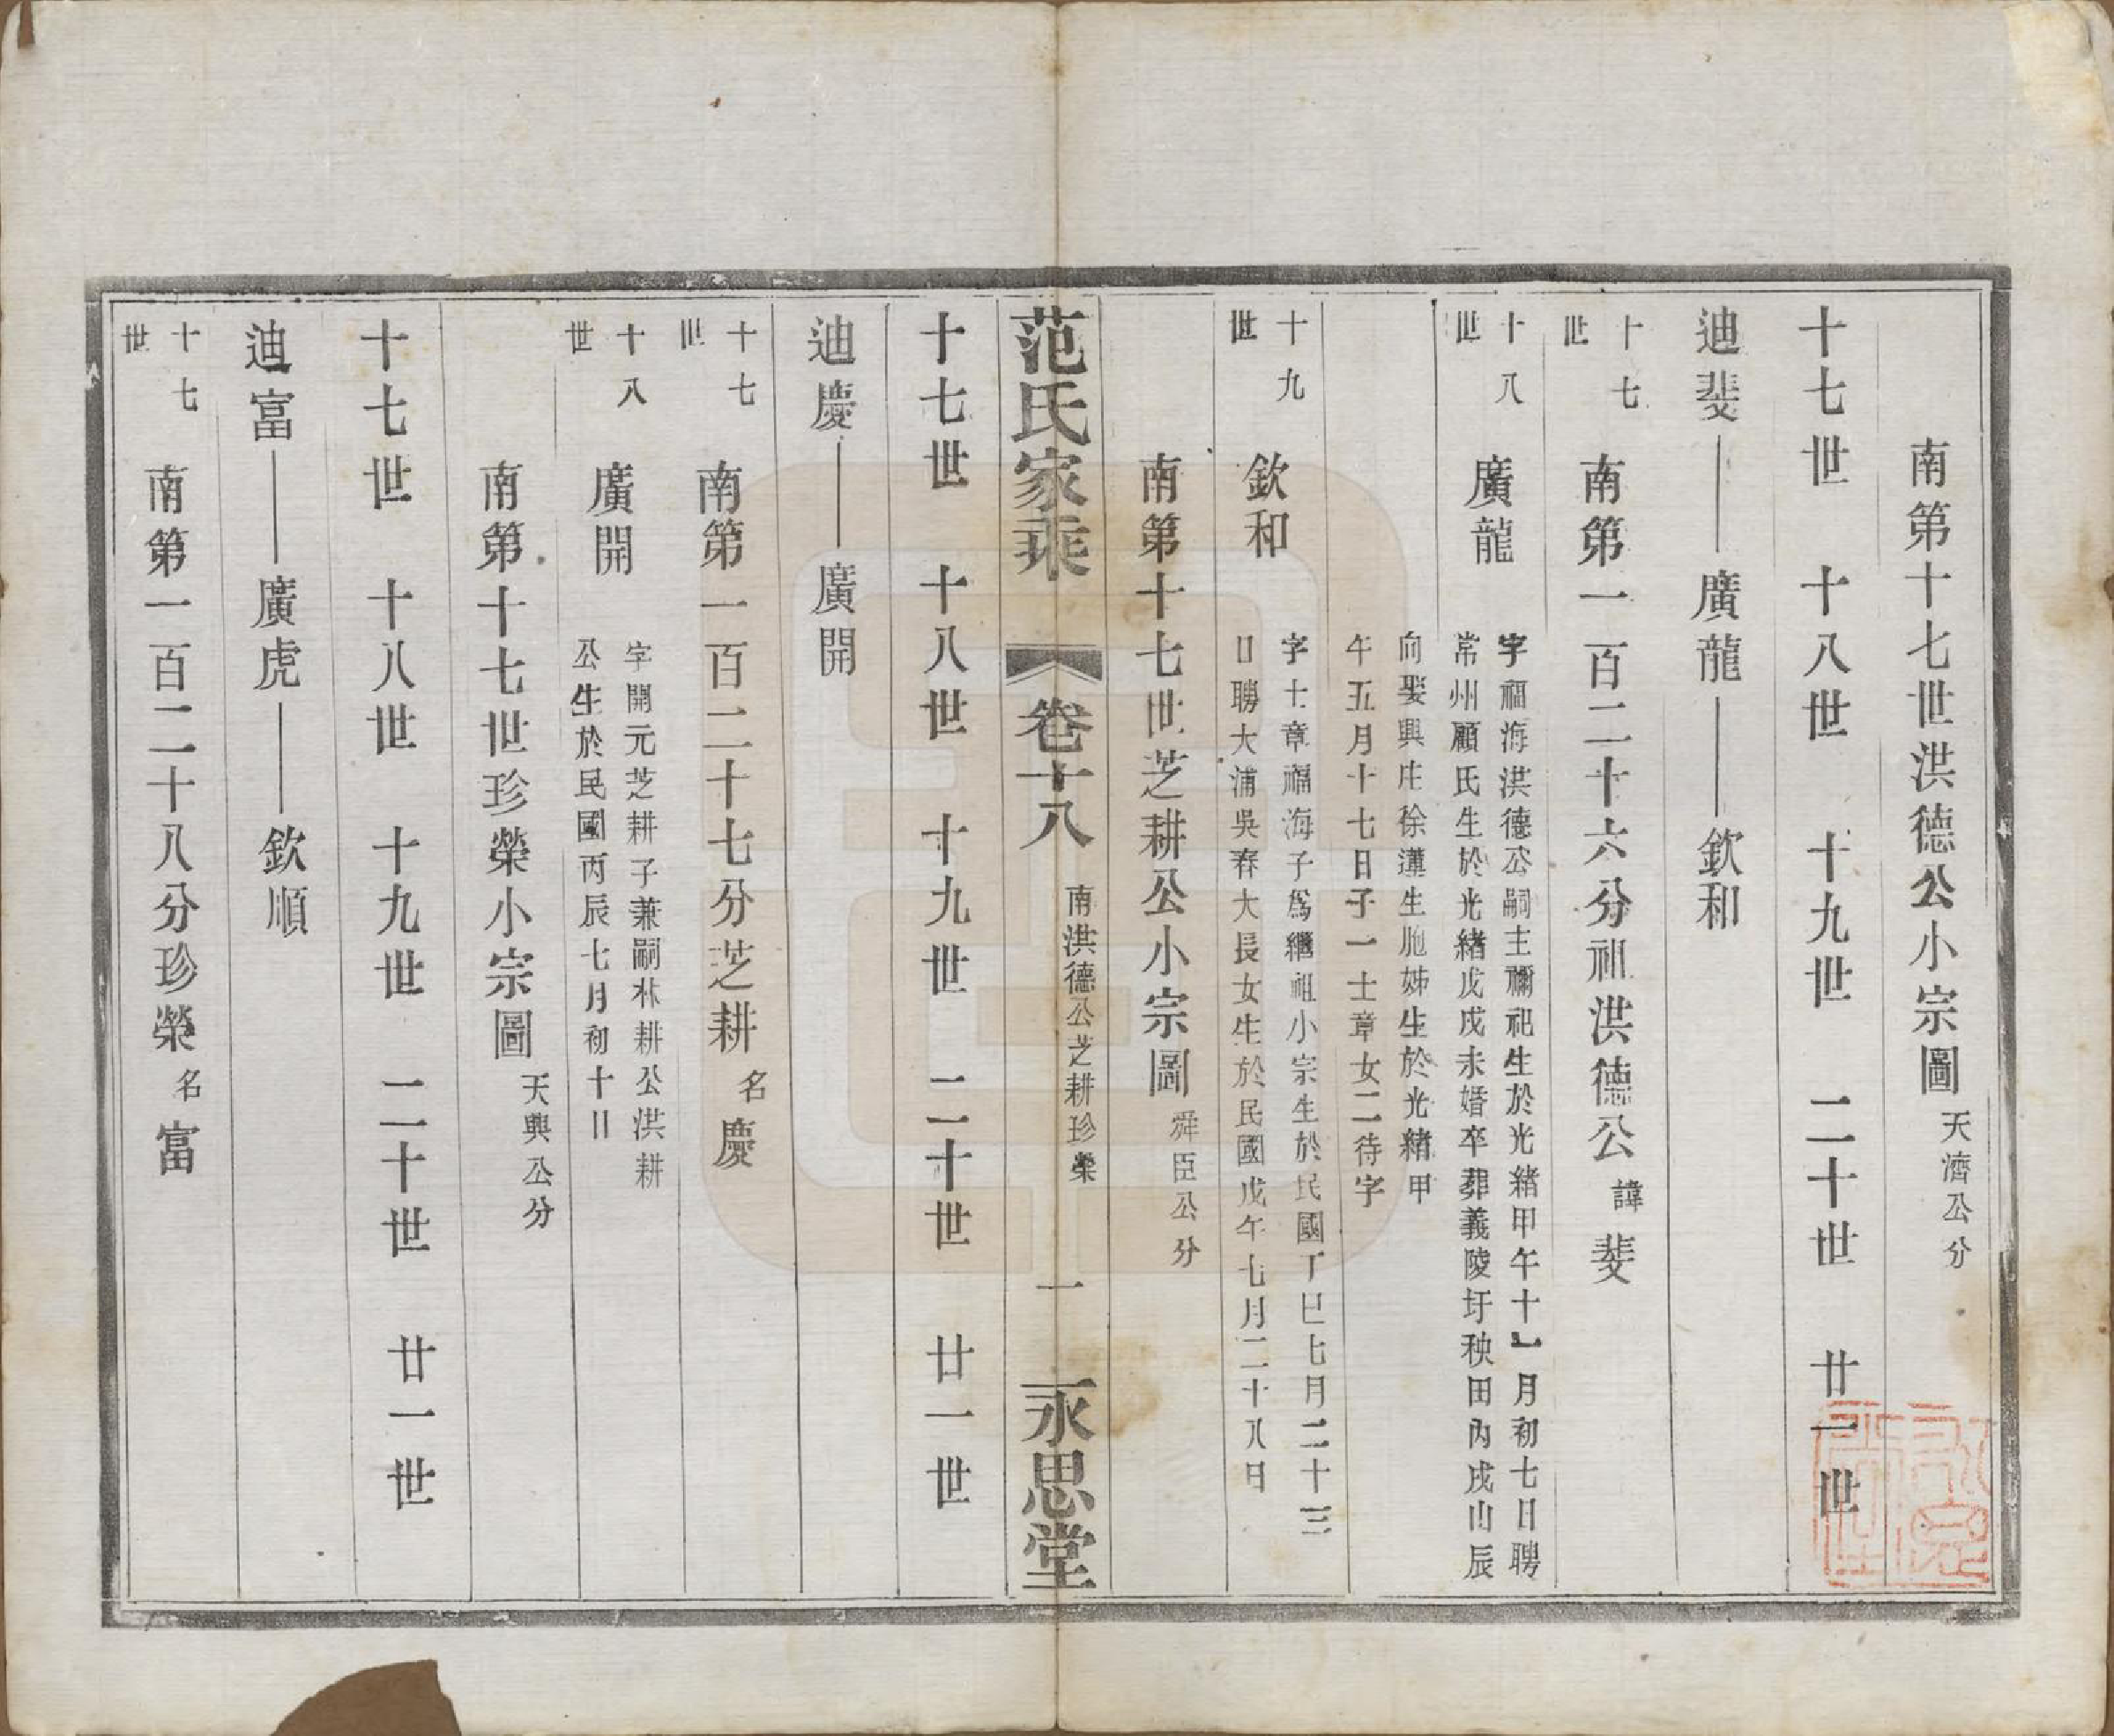 南第十七世洪德公小宗圖 天濟公分
十七世 十八世 十九世 二十世 廿一世
迪斐 廣龍 欽和
十七世 南第一百二十六分祖洪德公 諱斐
十八世 廣龍 字福海洪德公嗣主禰祀生於光緒甲午十一月初七日聘
常州顧氏生於光緒戊戌未婚卒葬義陵圩秧田內戌山辰
向娶興庄徐溝生胞姊生於光緒甲
午五月十七日子一士章女二待字
十九世 欽和 字士章福海子爲繼祖小宗生於民國丁巳七月二十三
日聘大浦吳春大長女生於民國戊午七月二十八日
南第十七世芝耕公小宗圖 舜臣公分
范氏家乘 卷十八 南洪德公芝耕珍榮 一 永思堂
十七世 十八世 十九世 二十世 廿一世
迪慶 廣開
十七世 南第一百二十七分芝耕 名慶
十八世 廣開 字開元芝耕子兼嗣林耕公洪耕
公生於民國丙辰七月初十日
南第十七世珍榮小宗圖 天興公分
十七世 十八世 十九世 二十世 廿一世
迪富 廣虎 欽順
十七世 南第一百二十八分珍榮 名富